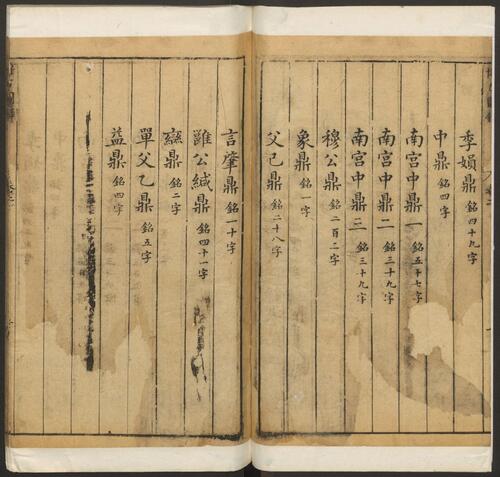 季媍鼎 銘四十九字
中鼎 銘四字
南宮中鼎一 銘五十七字
南宮中鼎二 銘三十九字
南宮中鼎三 銘三十九字
穆公鼎 銘二百二字
象鼎 銘一字
父己鼎 銘二十八字
言肇鼎 銘一十字
雝公緘鼎 銘四十一字
䜌鼎 銘二字
單父乙鼎 銘五字
益鼎 銘四字